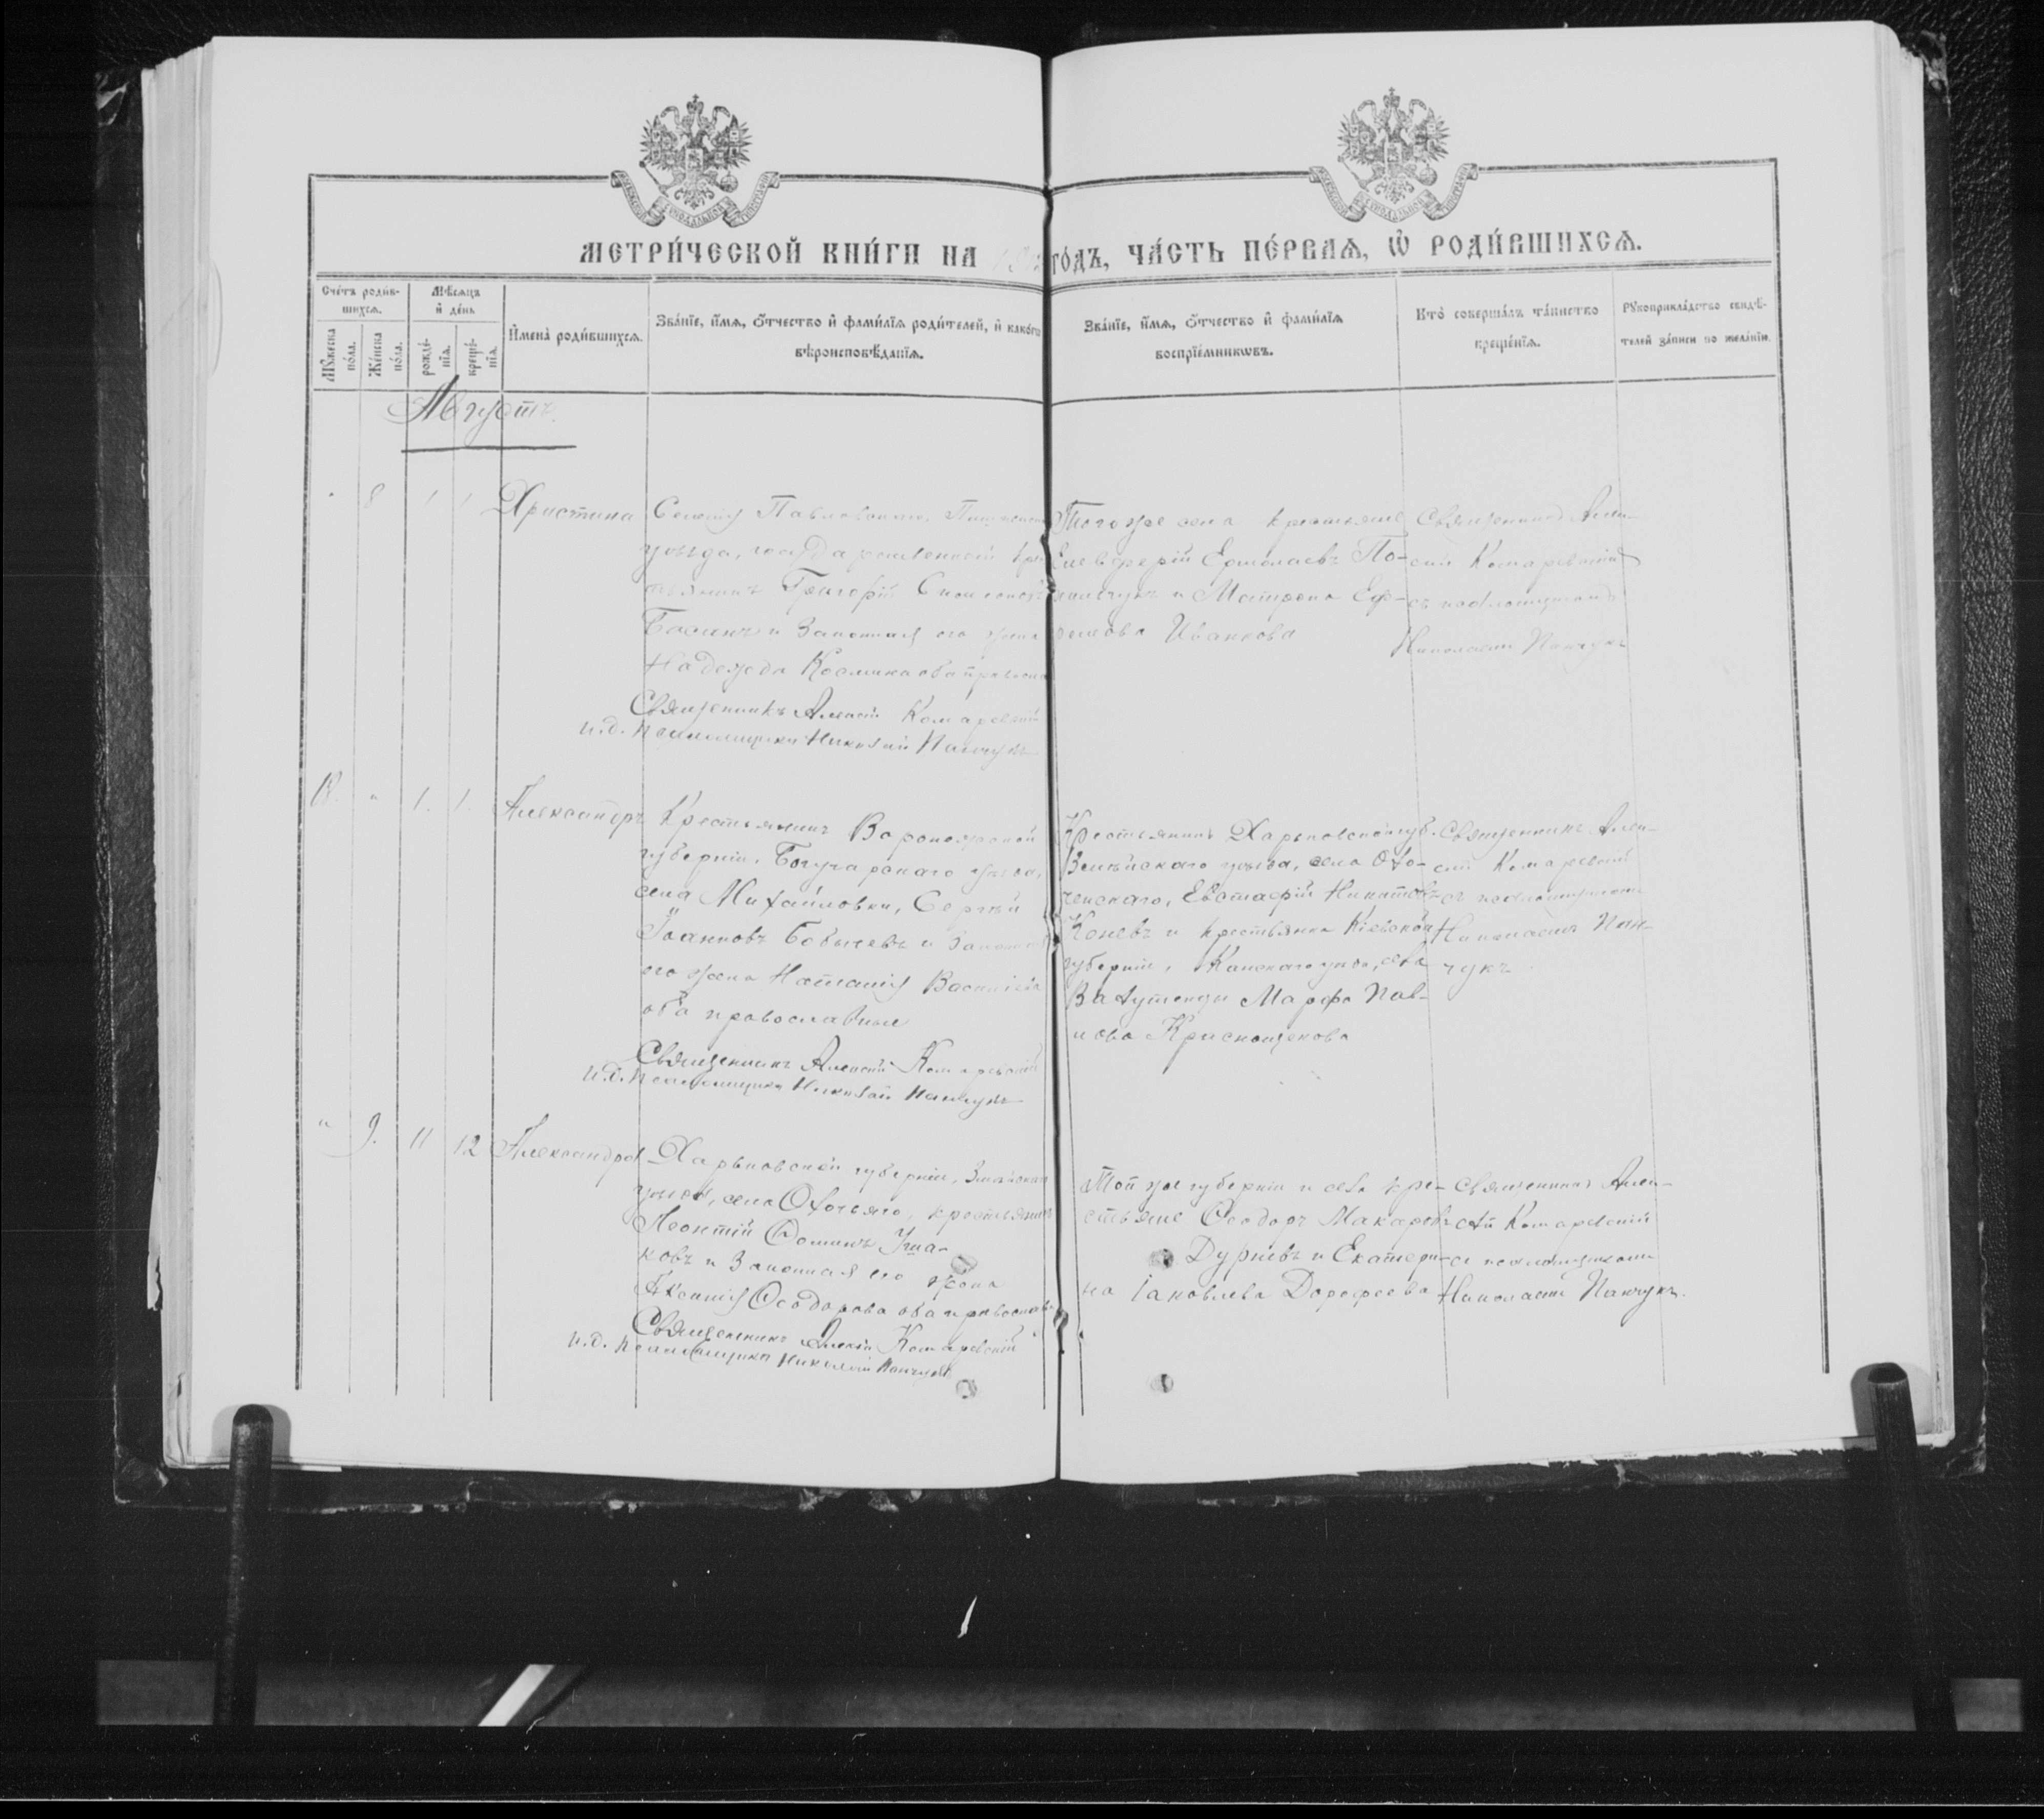 МЕТРИ́ЧЕСКОЙ КНИ́ГИ НА ГО́ДЪ, ЧА́СТЬ ПЕ́РВАЯ, Ѽ РОДИ́ВШИХСЯ.
Сче́тъ роди́в-
шихся.
Мꙋ́жеска
по́ла.
Же́нска
по́ла.
Мѣ́сяцъ
и҆ де́нь
рожде́-
нїя.
креще́-
нїя.
И҆мена̀ роди́вшихся.
Зва́нїе, и҆́мя, ѻ҆́тчество и҆ фами́лїя роди́телей, и҆ како́гѡ
вѣроисповѣ́данїя.
Зва́нїе, и҆́мя, ѻ҆́тчество и҆ фами́лїя
воспрїе́мникѡвъ.
Кто̀ соверша́лъ та́инство
креще́нїя.
Рꙋкоприкла́дство свидѣ́-
телей за́писи по жела́нїю.
Августъ.
8 1 1 Христина
Селенія Павловскаго,
уѣзда, государственный кре
стьянинъ Григорій
и законная его жена
Надежда оба правосл
Священникъ Алексій Комаревскій
и.д. псаломщика Николай Панчукъ
Того же села крестьяне
Елевферій Ермолаевъ По-
и Матрона Еф-
ремова Иванкова
Священникъ Алек-
сій Комаревскій
съ псаломщикомъ
Николаемъ Панчукъ
18. " 1. 1. Александръ
Крестьянинъ Воронежской
губерніи, Богучарскаго уѣзда,
села Михайловки, Сергѣй
Іоанновъ Бобычевъ и законная
его жена Наталія Василіева
оба православные
Священникъ Алексій Комаревскій
и.д. псаломщика Николай Панчукъ
Крестьянинъ Харьковской губ.
Зміевскаго уѣзда, села Охо-
ченскаго, Евстафій Никитовъ
Коневъ и крестьянка Кіевской
губерніи, Каневскаго уѣзда, села
Марфа Пав-
лова Краснощекова
Священникъ Алек-
сій Комаревскій
съ псаломщикомъ
Николаемъ Пан-
чукъ
" 9. 11 12 Александра
Харьковской губерніи, Зміевскаго
уѣзда, села Охочьяго, крестьянинъ
Леонтій Фоминъ Уша-
ковъ и законная его жена
Ксенія Ѳеодорова оба православ
Священникъ Алексій Комаревскій
и.д. псаломщика Николай Панчукъ
Той же губерніи и села кре-
стьяне Ѳеодоръ Макаровъ
Дурневъ и Екатери-
на Іаковлева Дорофеева
Священникъ Алек-
сѣй Комаревскій
съ псаломщикомъ
Николаемъ Панчукъ.